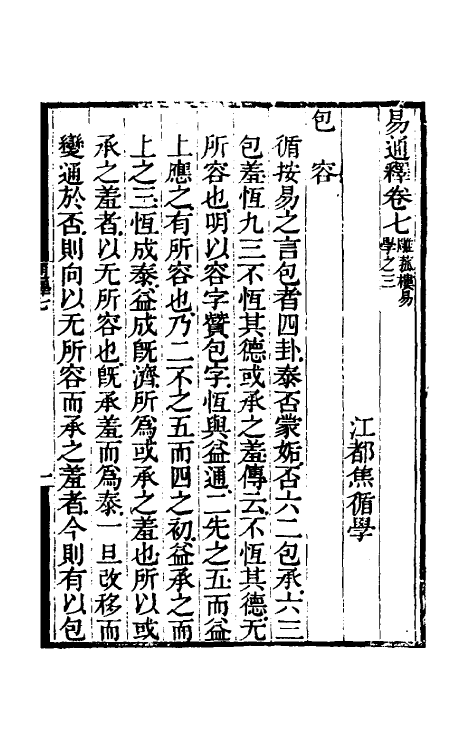 易通釋卷七雕菰樓易學之三
江都焦循學
包 容
循按易之言包者四卦泰否蒙姤否六二包承六三
包羞恆九三不恆其德或承之羞傳云不恆其德无
所容也明以容字贊包字恆與益通二先之五而益
上應之有所容也乃二不之五而四之初益承之而
上之三恆成泰益成旣濟所爲或承之羞也所以或
承之羞者以无所容也旣承羞而爲泰一旦改移而
變通於否則向以无所容而承之羞者今則有以包